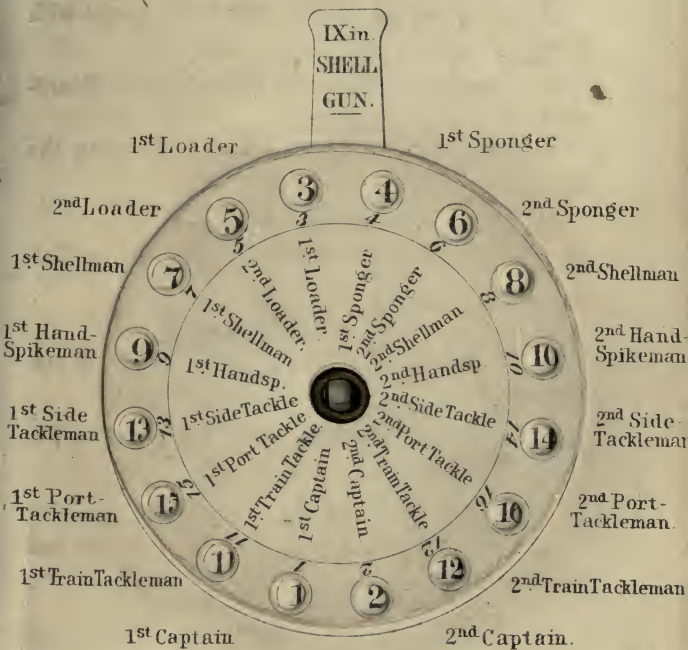 IX in.
SHELL
GUN.
1st Loader
1st Sponger
2nd Loader
2nd Sponger
1st Shellman
2nd Shellman
1st Hand-
Spikeman
2nd Hand-
Spikeman
1st Side
Tackleman
2nd Side-
Tackleman
1st Port-
Tackleman
2nd Port-
Tackleman.
1st Train Tackleman
2nd Train Tackleman
1st Captain
2nd Captain.
3
4
5
6
7
8
9
10
13
14
15
16
11
12
1
2
3
4
5
6
7
8
9
10
13
14
15
16
11
12
1
2
1st Loader.
1st Sponger
2nd Loader.
2nd Sponger
1st Shellman
2nd Shellman
1st Handsp.
2nd Handsp
1st Side Tackle
2nd Side Tackle
1st Port Tackle
2nd Port Tackle
1st Train Tackle.
2nd Train Tackle
1st Captain
2nd Captain